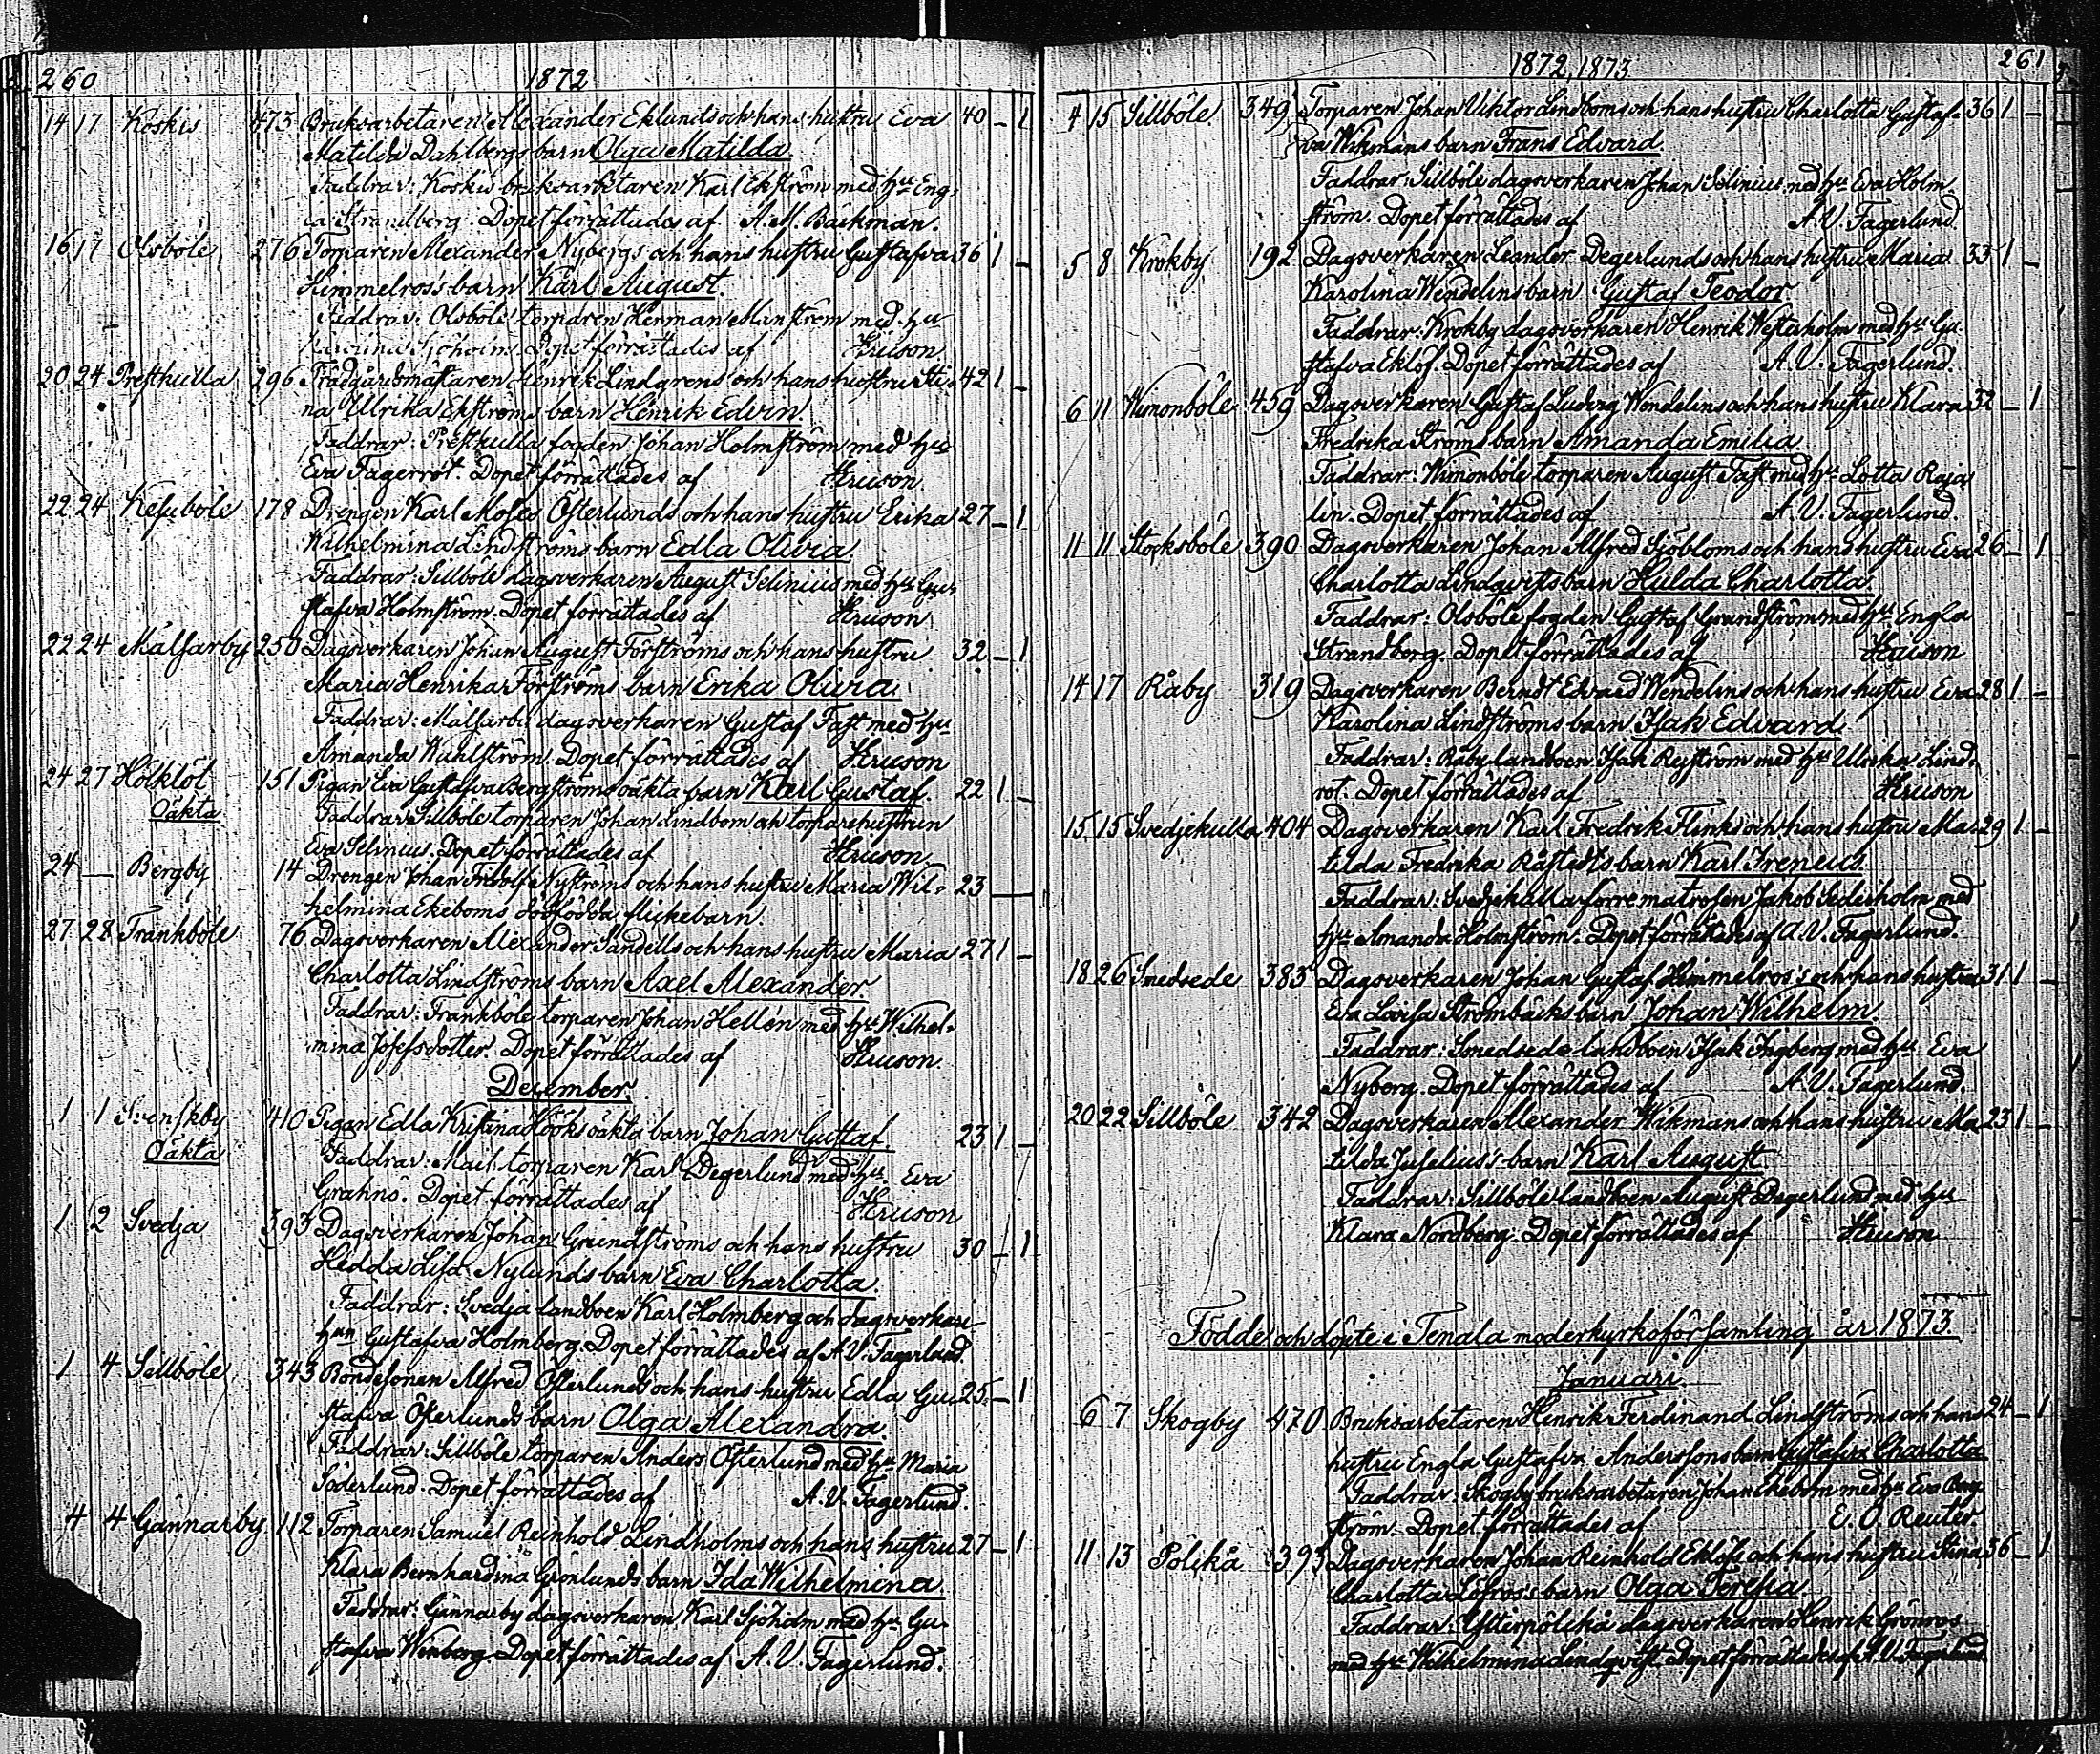 260 1872
14 17 Koskis 473 Bruksarbetaren Alexander Eklunds och hans hustru Eva 40 - 1
Matilda Dahlbergs barn Olga Matilda.
Faddrar: Koskis bruksarbetaren Karl Ekström med hu Eng-
la Strandberg. Dopet förrättades af A. M. Bäckman.
16 17 Olsböle 276 Torparen Alexander Nybergs och hans hustru Gustafva 36 1 -
Himmelros's barn Karl August.
Faddrar: Olsböle torparen Herman Manström med hu
Karolina Sjöholm. Dopet förrättades af Hrüson.
20 24 Prestkulla 296 Trädgårdsmästaren Henrik Lindgrens och hans hustru Sti- 42 1 -
na Ulrika Ekströms barn Henrik Edvin.
Faddrar: Prestkulla fogden Johan Holmström med hu
Eva Fagerrot. Dopet förrättades af Hrüson.
22 24 Kesuböle 178 Drengen Karl Moses Österlunds och hans hustru Erika 27 - 1
Wilhelmina Lindströms barn Edla Olivia.
Faddrar: Sillböle dagsverkaren August Selinius med hu Gu-
stafva Holmström. Dopet förrättades af Hrüson.
22 24 Målsarby 250 Dagsverkaren Johan August Forströms och hans hustru 32 - 1
Maria Henrika Forströms barn Erika Olivia.
Faddrar: Målsarby dagsverkaren Gustaf Fast med hu
Amanda Wahlström. Dopet förrättades af Hrüson
24 27 Holklöt 151 Pigan Eva Gustafva Bergströms oäkta barn Karl Gustaf. 22 1 -
Oäkta Faddrar Sillböle torparen Johan Lindbom och torparehustrun
Eva Selinius. Dopet förrättades af Hrüson.
24 — Bergby 14 Drengen Johan Fridolf Nyströms och hans hustru Maria Wil- 23 —
helmina Ekeboms dödfödda flickebarn.
27 28 Frankböle 76 Dagsverkaren Alexander Sandells och hans hustru Maria 27 1 -
Charlotta Lindströms barn Axel Alexander.
Faddrar: Frankböle torparen Johan Hellén med hu Wilhel-
mina Josefsdotter. Dopet förrättades af Hrüson.
December.
1 1 Svenskby 410 Pigan Edla Kristina Hööks oäkta barn Johan Gustaf. 23 1 -
Oäkta Faddrar: torparen Karl Degerlund med hu Eva
Grahns. Dopet förrättades af Hrüson
1 2 Svedja 393 Dagsverkaren Johan Grundströms och hans hustru 30 - 1
Hedda Lisa Nylunds barn Eva Charlotta.
Faddrar: Svedja landboen Karl Holmberg och dagsverkare
hun Gustafva Holmberg. Dopet förrättades af A. V. Fagerlund.
1 4 Sillböle 343 Bondesonen Alfred Österlunds och hans hustru Edla Gu- 25 - 1
stafva Österlunds barn Olga Alexandra.
Faddrar: Sillböle torparen Anders Österlund med hu Maria
Söderlund. Dopet förrättades af A. V. Fagerlund.
4 4 Gännarby 112 Torparen Samuel Reinhold Lindholms och hans hustru 27 - 1
Klara Bernhardina Grönlunds barn Ida Wilhelmina.
Faddrar: Gännarby dagsverkaren Karl Sjöholm med hu Gu-
stafva Wenberg. Dopet förrättades af A. V. Fagerlund.
1872, 1873 261
4 15 Sillböle 349 Torparen Johan Viktor Lindboms och hans hustru Charlotta Gustaf- 36 1 -
va Wikmans barn Frans Edvard.
Faddrar: Sillböle dagsverkaren Johan Selinius med hu Eva Holm-
ström. Dopet förrättades af A. V. Fagerlund.
5 8 Krokby 192 Dagsverkaren Leander Degerlunds och hans hustru Maria 33 1 -
Karolina Wendelins barn Gustaf Teodor
Faddrar: Krokby dagsverkaren Henrik Westerholm med hu Gu-
stafva Eklöf. Dopet förrättades af A. V. Fagerlund.
6 11 Wimonböle 459 Dagsverkaren Gustaf Ludvig Wendelins och hans hustru Klara 32 - 1
Fredrika Ströms barn Amanda Emilia
Faddrar: Wimonböle torparen August Fast med hu Lotta Roja
lin. Dopet förrättades af A. V. Fagerlund.
11 11 Stocksböle 390 Dagsverkaren Johan Alfred Sjöbloms och hans hustru Eva 26 - 1
Charlotta Lindqvists barn Hulda Charlotta
Faddrar: Olsböle fogden Gustaf Grundström med hu Engla
Strandberg. Dopet förrättades af Hrüson
14 17 Råby 319 Dagsverkaren Berndt Edvard Wendelins och hans hustru Eva 28 1 -
Karolina Lindströms barn Isak Edvard
Faddrar: Råby landboen Isak Regström med hu Ulrika Lind-
rot. Dopet förrättades af Hrüson
15 15 Svedjekulla 404 Dagsverkaren Karl Fredrik Flinks och hans hustru Ma- 29 1 -
tilda Fredrika Råstedts barn Karl Ireneus
Faddrar: Svedjekulla förre matrosen Jakob Sederholm med
hu Amanda Holmström. Dopet förrättades af A. V. Fagerlund.
18 26 Smedsede 383 Dagsverkaren Johan Gustaf Himmelros's och hans hustru 31 1 -
Eva Lovisa Strömbäcks barn Johan Wilhelm.
Faddrar: Smedsede landboen Isak Ingberg med hu Eva
Nyberg. Dopet förrättades af A. V. Fagerlund.
20 22 Sillböle 342 Dagsverkaren Alexander Wikmans och hans hustru Ma 23 1 -
tilda Juselius's barn Karl August
Faddrar: Sillböle landboen August Degerlund med hu
Klara Nordberg. Dopet förrättades af Hrüson
Födde och döpte i Tenala moderkyrkoförsamling år 1873
Januari
6 7 Skogby 470 Bruksarbetaren Henrik Ferdinand Lindströms och hans 24 - 1
hustru Engla Gustafva Anderssons barn Gustafva Charlotta
Faddrar: Skogby bruksarbetaren Johan Ekebom med hu Eva Berg-
ström. Dopet förrättades af E. O. Reuter
11 13 Pölikå 393 Dagsverkaren Johan Reinhold Eklöfs och hans hustru Stina 36 - 1
Charlotta Löfros's barn Olga Teresia
Faddrar: dagsverkaren Henrik Grönros
med hu Wilhelmina Lindqvist. Dopet förrättades af A. V. Fagerlund.